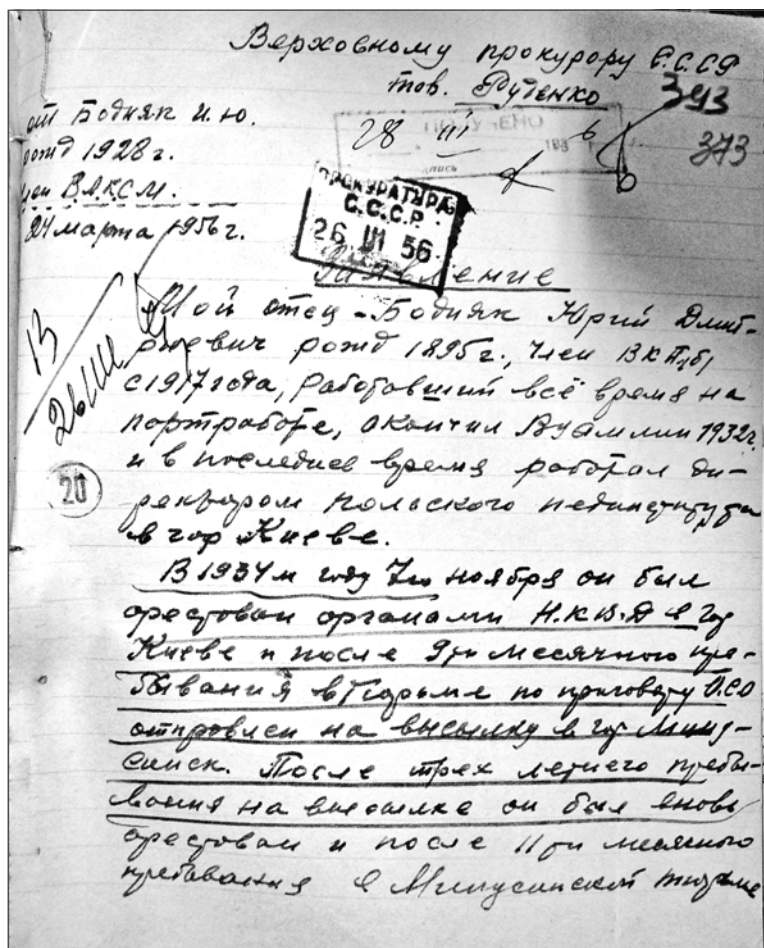 Верховному прокурору С.С.С.Р
тов. Руденко
393
373
от Бодняк И.Ю.
рожд 1928 г.
член ВЛКСМ.
24 марта 1956 г.
ПОЛУЧЕНО
28 III 6
ПРОКУРАТУРА
С.С.С.Р.
26 III 56
Заявление
Мой отец - Бодняк Юрий Дмит-
риевич рожд 1895 г., член ВКП(б)
с 1917 года, работавший всё время на
партработе, окончил Вуамлин 1932 г.
и в последнее время работал ди-
ректором польского пединститута
в гор Киеве.
В 1934 м году 7го ноября он был
арестован органами Н.К.В.Д в гор
Киеве и после 9ти месячного пре-
бывания в тюрьме по приговору О.С.О
отправлен на высылку в гор Мину-
синск. После трех летнего пребы-
вания на высылке он был вновь
арестован и после 11ти месячного
пребывания в Минусинской тюрьме
В
26/III
20